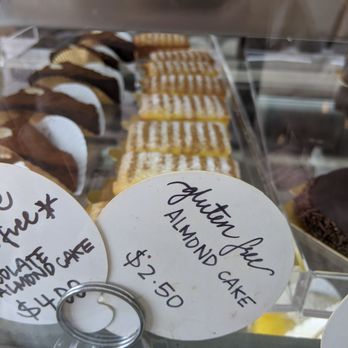 free*
ALMOND CAKE
$4.00
gluten free
ALMOND CAKE
$2.50